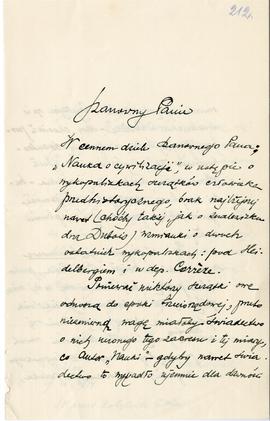 212.
Szanowny Panie
W cennem dziele Szanownego Pana:
„Nauka o cywilizacji", w ustępie o
wykopaliskach szczątków człowieka
przedhistorycznego, brak najlżejszej
nawet (choćby takiej, jak o znalezisku
dra Dubois) wzmianki o dwóch
ostatnich wykopaliskach: pod Hei-
delbergiem i w dep. Corrèze.
Ponieważ niektórzy szczątki one
odnoszą do epoki trzeciorzędowej, przeto
niezmierną wagę miałoby świadectwo
o nich uczonego tego zakresu i tej miary,
co Autor „Nauki" – gdyby nawet świa-
dectwo to wypadło ujemnie dla